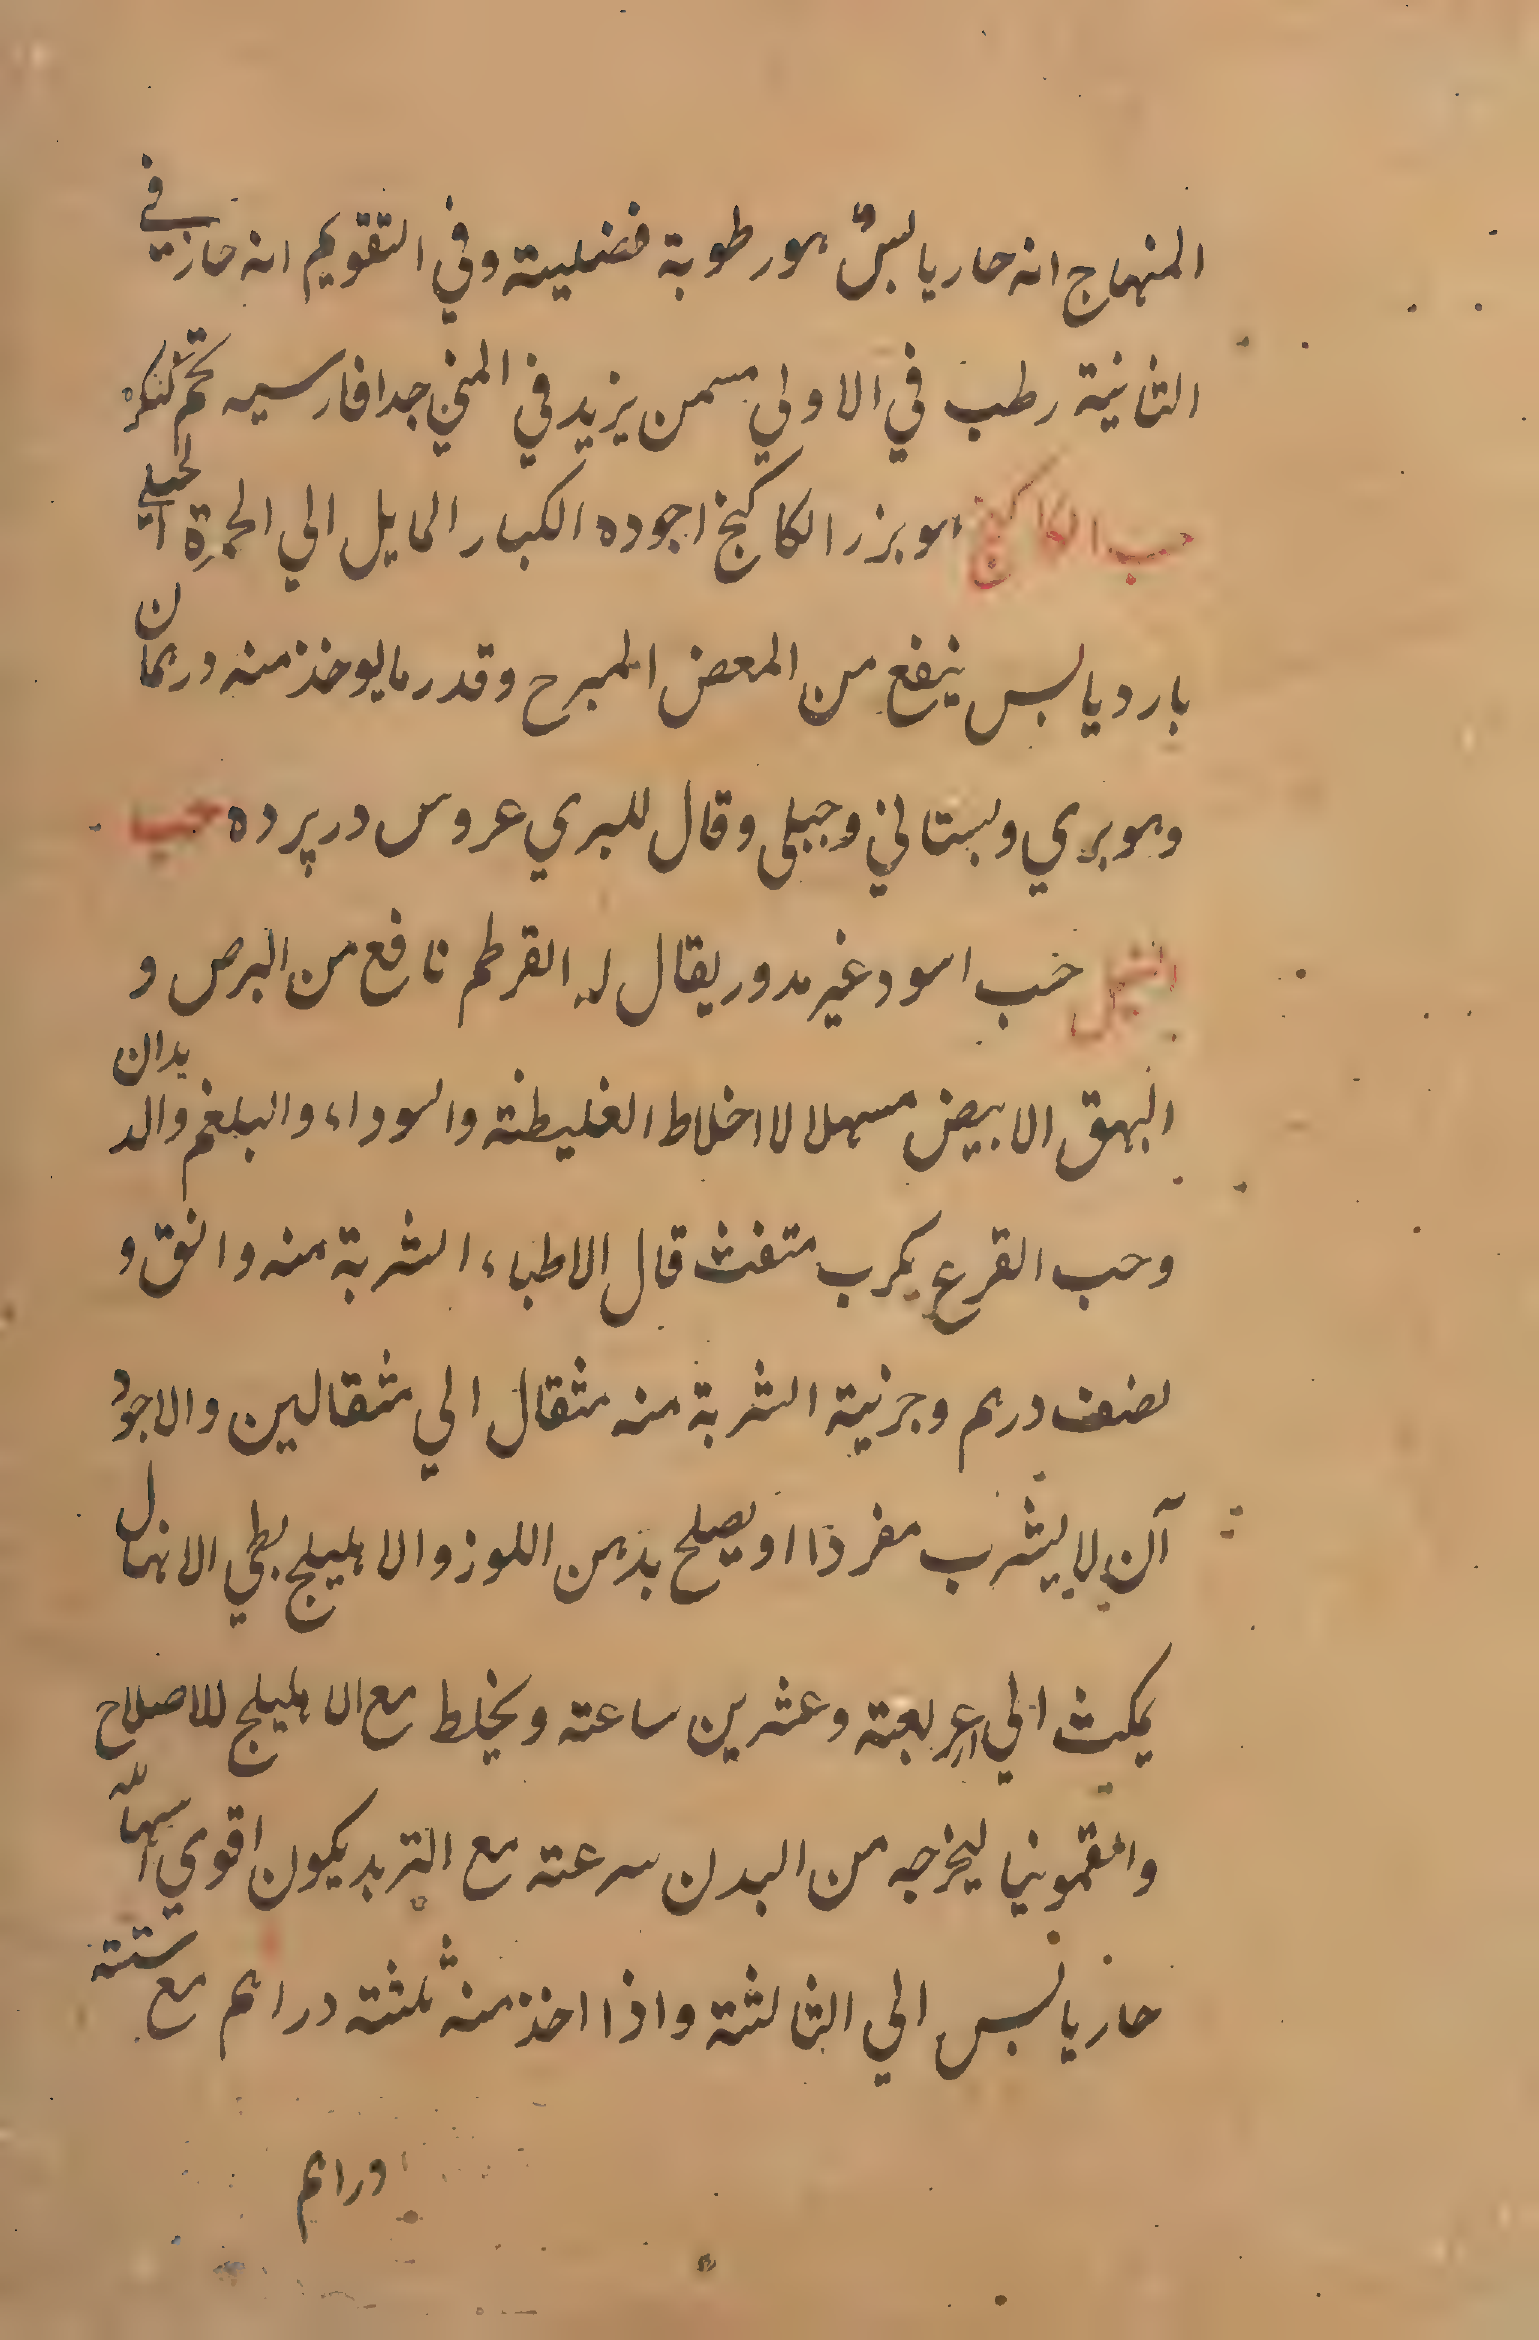 المنهاج انه حار يابس هو رطوبة فضلية وفي التقويم انه حار في
الثانية رطب في الاولي مسمن يزيد في المني جدا فارسيه تخم كنكره
حب الكاكنج هو بزر الكاكنج اجوده الكبار المايل الي الحمرة الجبلي
بارد يابس ينفع من المعض المبرح وقدر ما يوخذ منه درهمان
وهو بري وبستاني وجبلي وقال للبري عروس در پرده حب
النيل حب اسود غير مدور يقال له القرطم نافع من البرص و
البهق الابيض مسهلا لااخلاط الغليظة والسوداء والبلغم والديدان
وحب القرع يكرب متفث قال الاطباء الشربة منه دانق و
نصف درهم وجزئية الشربة منه مثقال الي مثقالين والاجود
آن لا يشرب مفردا او يصلح بدهن اللوز والاهليلج بطي الانهال
يمكث الي اربعة وعشرين ساعة ويخلط مع الاهليلج للاصلاح
والسقمونيا ليخرجه من البدن سرعة مع التربد يكون اقوي اسهاله
حار يابس الي الثالثة واذا اخذ منه ثلثة دراهم مع ستة
دراهم